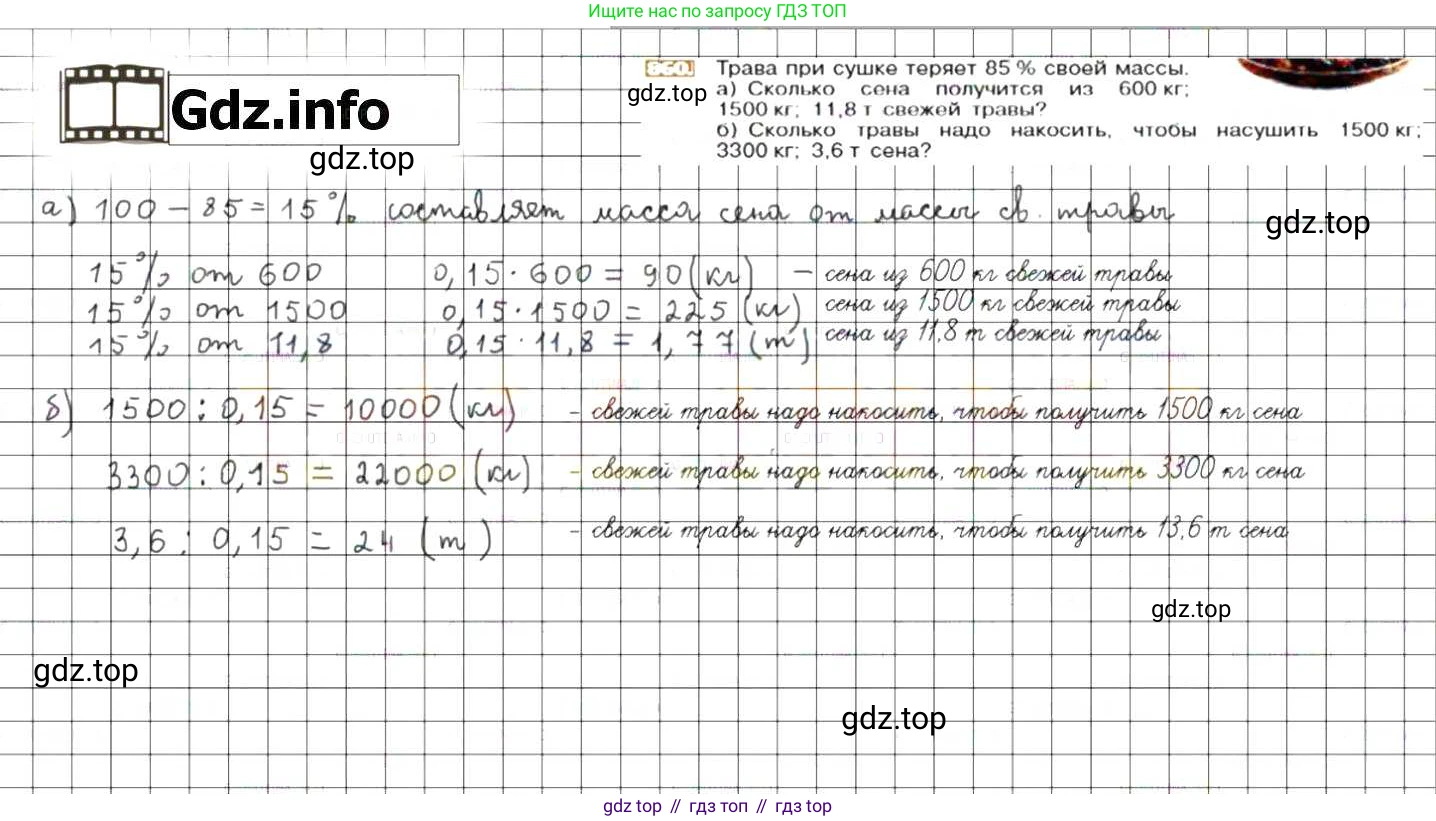 Ищите нас по запросу ГДЗ ТОП
Gdz.info
gdz.top
860. Трава при сушке теряет 85 % своей массы.
gdz.top
а) Сколько сена получится из 600 кг;
1500 кг; 11,8 т свежей травы?
б) Сколько травы надо накосить, чтобы насушить 1500 кг;
3300 кг; 3,6 т сена?
а) 100 – 85 = 15% составляет масса сена от массы св. травы
gdz.top
15% от 600 0,15 · 600 = 90 (кг) – сена из 600 кг свежей травы
15% от 1500 0,15 · 1500 = 225 (кг) сена из 1500 кг свежей травы
15% от 11,8 0,15 · 11,8 = 1,77 (т) сена из 11,8 т свежей травы
б) 1500 : 0,15 = 10000 (кг) - свежей травы надо накосить, чтобы получить 1500 кг сена
3300 : 0,15 = 22000 (кг) - свежей травы надо накосить, чтобы получить 3300 кг сена
3,6 : 0,15 = 24 (т) - свежей травы надо накосить, чтобы получить 13,6 т сена
gdz.top
gdz.top
gdz.top
gdz top // гдз топ // гдз top